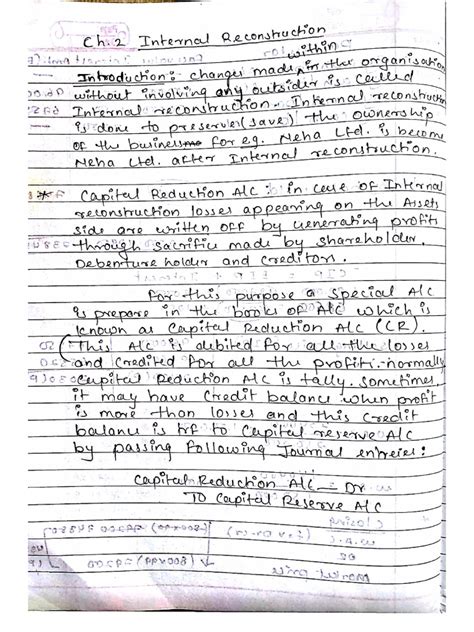 Ch. 2 Internal Reconstruction
within
Introduction: changes made in the organisation
without involving any outsider is called
Internal reconstruction. Internal reconstruction
is done to preserve (save) the ownership
of the business for eg. Neha Ltd. is become
Neha Ltd. after Internal reconstruction.
* Capital Reduction A/c : in case of Internal
reconstruction losses appearing on the Assets
side are written off by generating profits
through sacrifice made by shareholder,
Debenture holder and Creditors.
For this purpose a special A/c
is prepare in the books of A/c which is
known as Capital Reduction A/c (CR).
This A/c is debited for all the losses
and credited for all the profits. normally
Capital Reduction A/c is tally. sometimes,
it may have credit balance when profit
is more than losses and this credit
balance is trf to Capital reserve A/c
by passing following Journal entries:
Capital Reduction A/c — Dr
TO Capital Reserve A/c